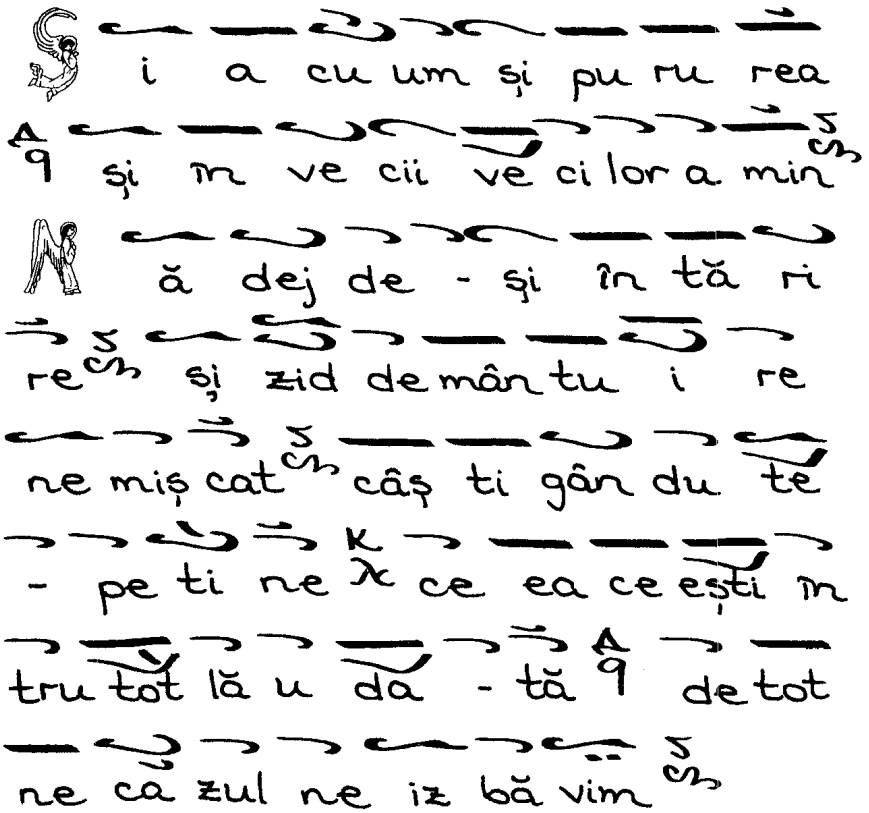 Și a cu um și pu ru rea
și în ve cii ve ci lor a min
Nă dej de - și în tă ri
re și zid de mân tu i re
ne miș cat câș ti gân du te
- pe ti ne ce ea ce ești în
tru tot lă u da - tă de tot
ne ca zul ne iz bă vim